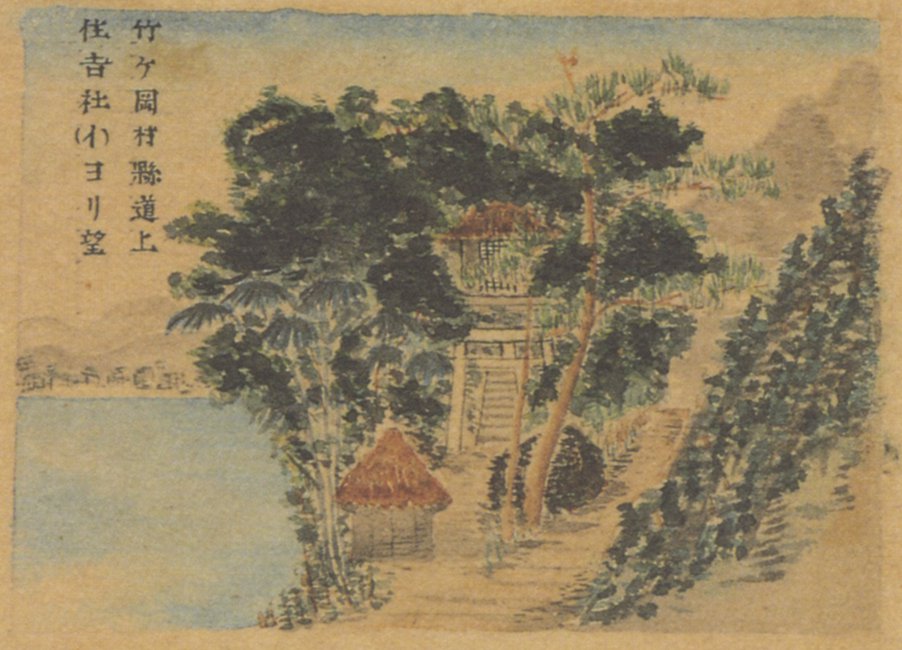 竹ヶ岡村縣道上
住吉社(イ)ヨリ望